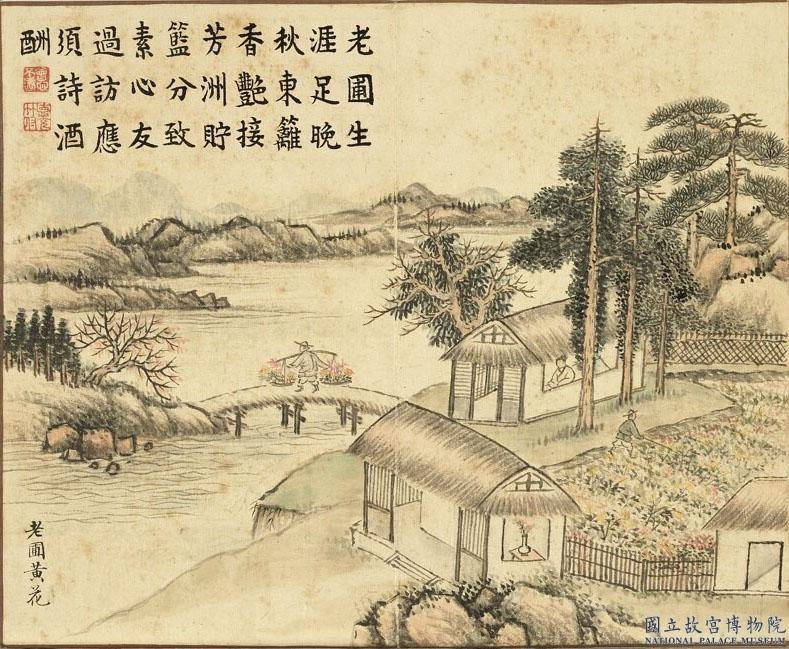 老圃生
涯足晚
秋東籬
香艷接
芳洲貯
籃分致
素心友
過訪應
須詩酒
酬
老圃黃花
國立故宮博物院
NATIONAL PALACE MUSEUM